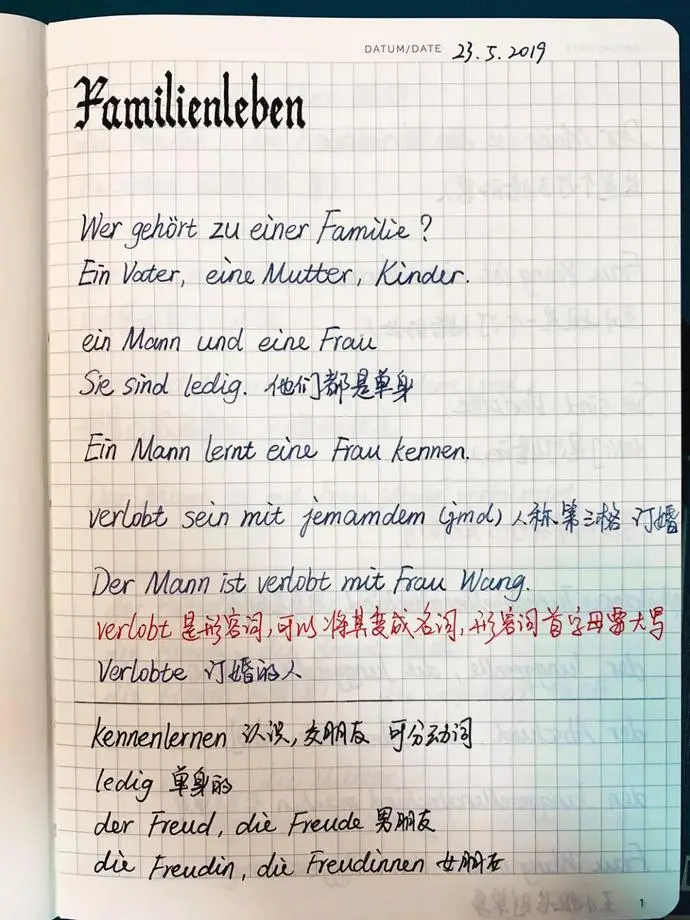 DATUM/DATE 23.5.2019
Familienleben
Wer gehört zu einer Familie?
Ein Vater, eine Mutter, Kinder.
ein Mann und eine Frau
Sie sind ledig. 他们都是单身
Ein Mann lernt eine Frau kennen.
verlobt sein mit jemamdem (jmd) 人称第三格 订婚
Der Mann ist verlobt mit Frau Wang.
verlobt 是形容词,可以将其变成名词,形容词首字母要大写
Verlobte 订婚的人
kennenlernen 认识,交朋友 可分动词
ledig 单身的
der Freud, die Freude 男朋友
die Freudin, die Freudinnen 女朋友
1